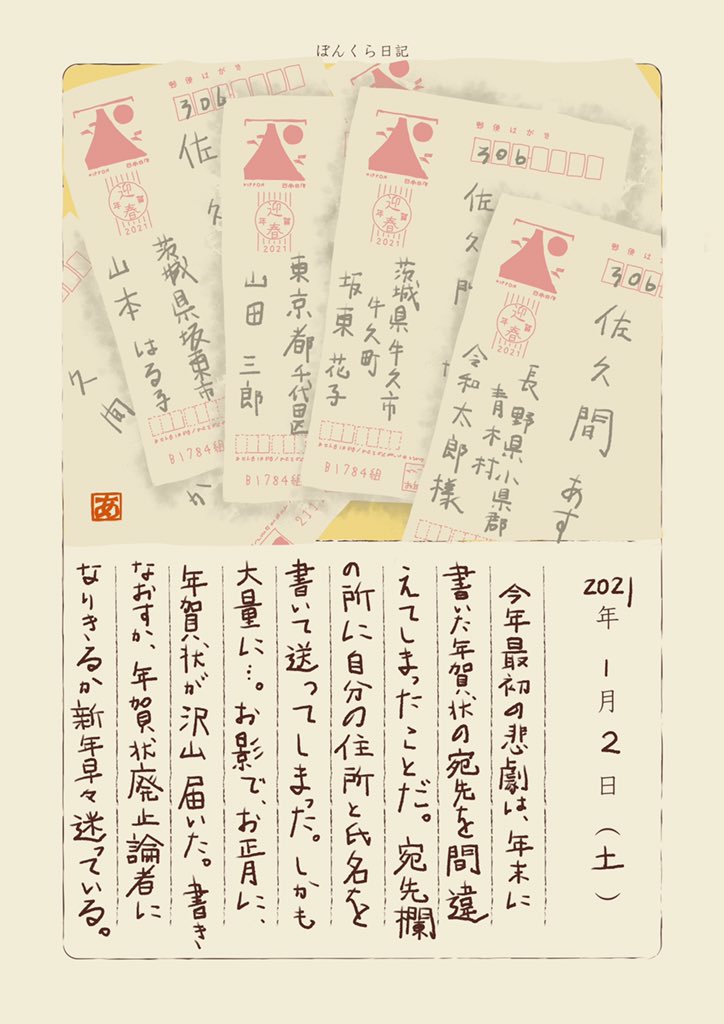 ぼんくら日記
郵便はがき
306
佐久
NIPPON 日本郵便
迎春
年賀
2021
茨城県坂東市
山本 はる子
B1784組
NIPPON 日本郵便
迎春
年賀
2021
東京都千代田区
山田 三郎
B1784組
郵便はがき
306
佐久間
NIPPON 日本郵便
迎春
年賀
2021
茨城県牛久市
牛久町
坂東 花子
B1784組
郵便はがき
306
佐久間 あす
NIPPON 日本郵便
迎春
年賀
2021
長野県小県郡
青木村
令和太郎様
久間
か
211
あ
2021年1月2日(土)
今年最初の悲劇は、年末に
書いた年賀状の宛先を間違
えてしまったことだ。宛先欄
の所に自分の住所と氏名を
書いて送ってしまった。しかも
大量に…。お影で、お正月に、
年賀状が沢山届いた。書き
なおすか、年賀状廃止論者に
なりきるか新年早々迷っている。